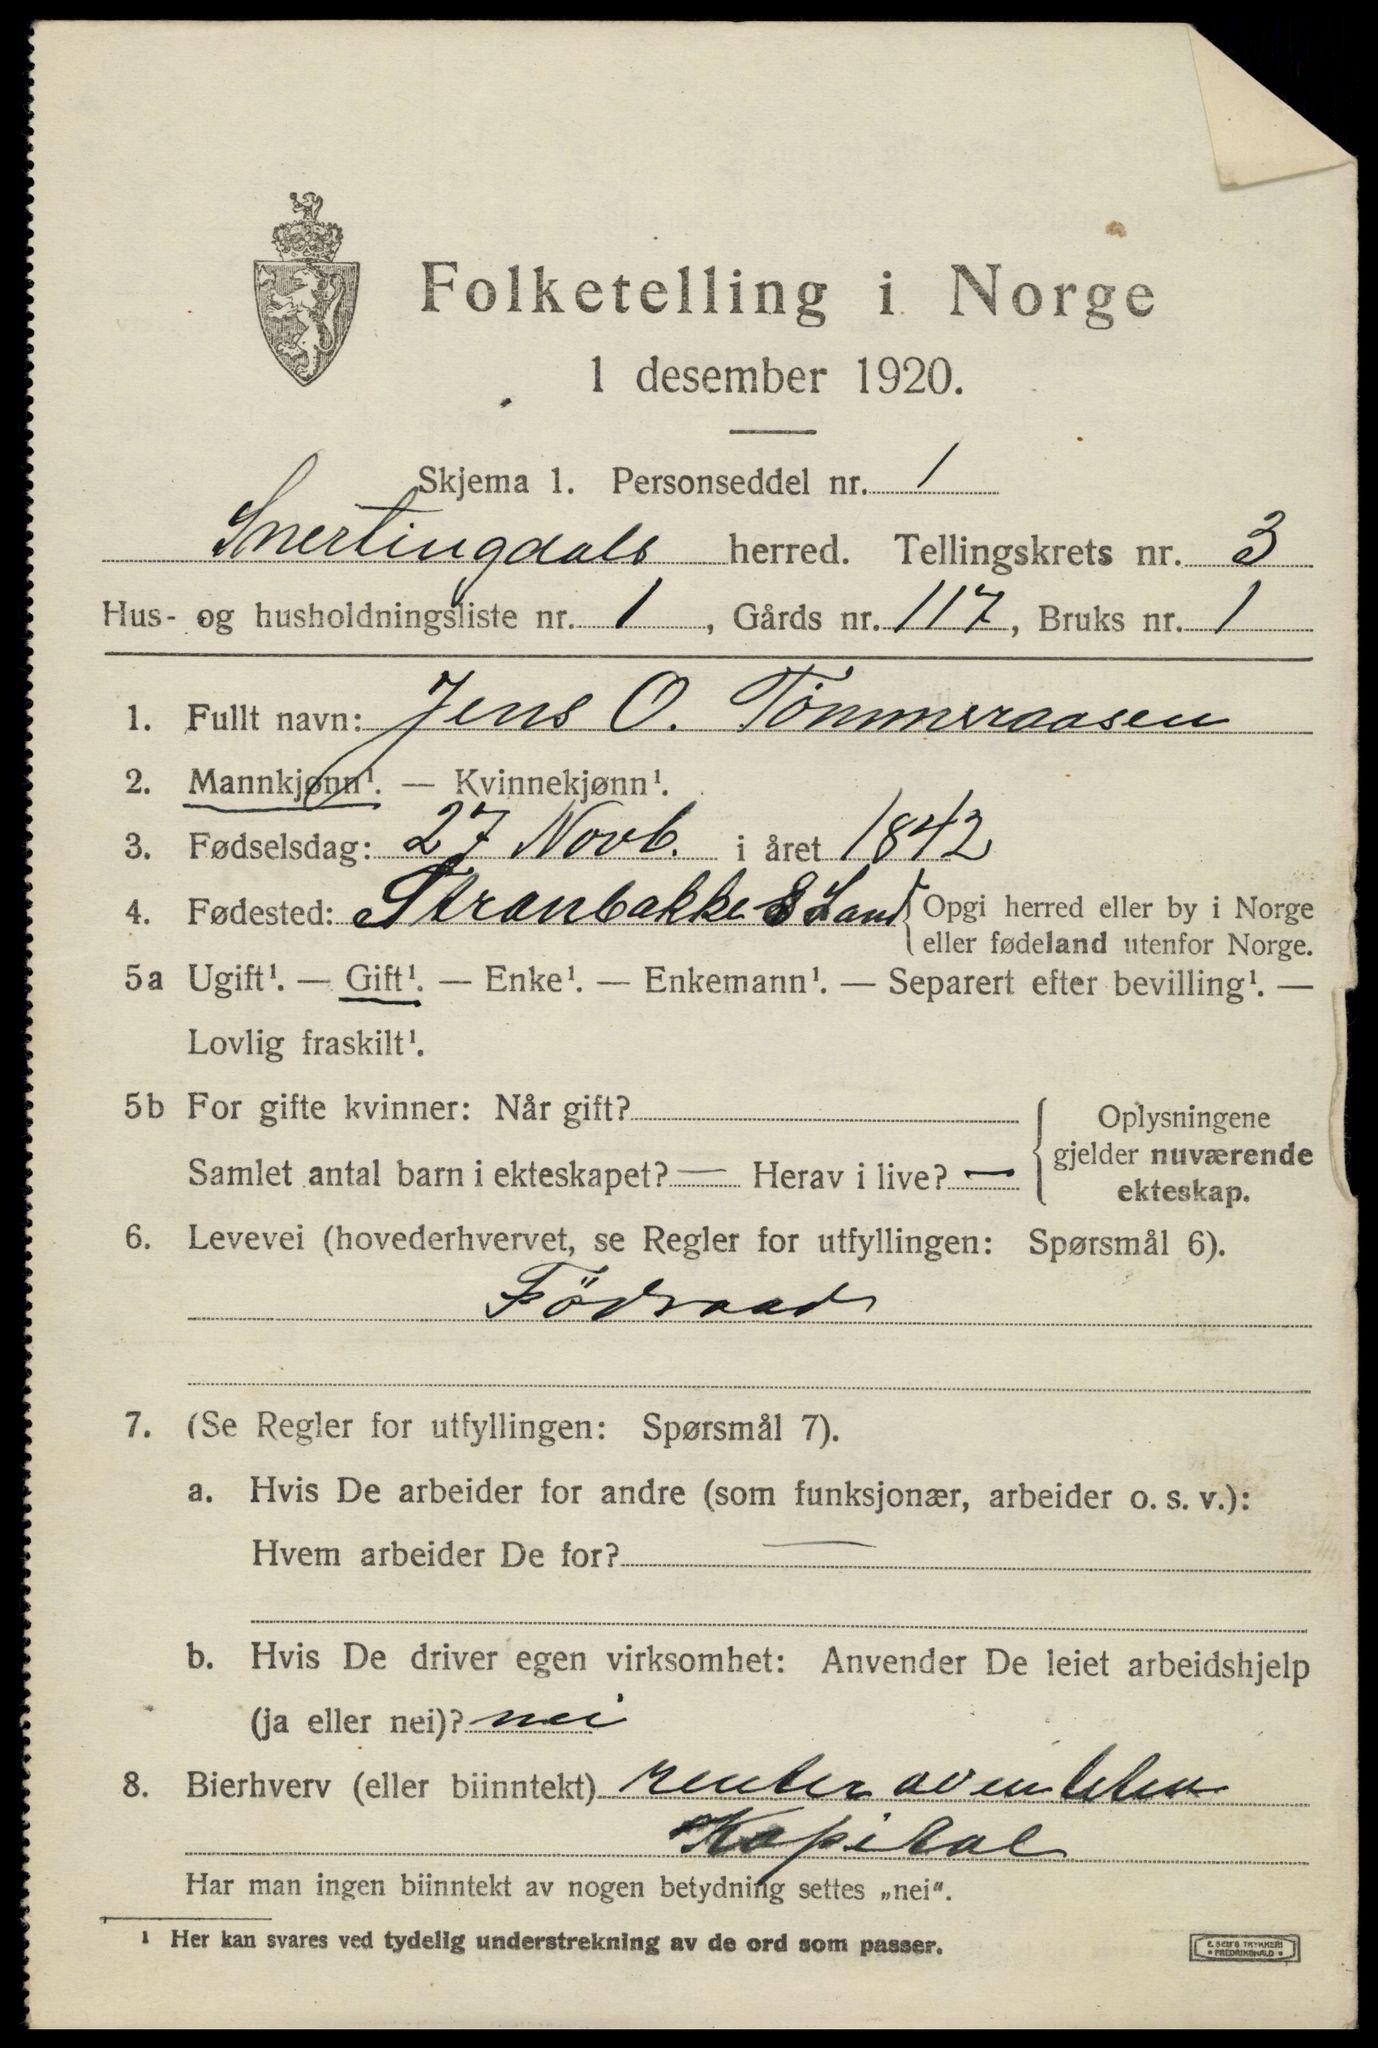 Folketelling i Norge
1 desember 1920.
Skjema 1. Personseddel nr. 1
Snertingdals herred. Tellingskrets nr. 3
Hus- og husholdningsliste nr. 1, Gårds nr. 117, Bruks nr. 1
1. Fullt navn: Jens O. Tömmeraasen
2. Mannkjønn¹. — Kvinnekjønn¹.
3. Fødselsdag: 27 Novb. i året 1842
4. Fødested: Stranbakke S Land { Opgi herred eller by i Norge
eller fødeland utenfor Norge.
5a Ugift¹. — Gift¹. — Enke¹. — Enkemann¹. — Separert efter bevilling¹. —
Lovlig fraskilt¹.
5b For gifte kvinner: Når gift?
Samlet antal barn i ekteskapet? — Herav i live? —
Oplysningene
gjelder nuværende
ekteskap.
6. Levevei (hovederhvervet, se Regler for utfyllingen: Spørsmål 6).
Födraad
7. (Se Regler for utfyllingen: Spørsmål 7).
a. Hvis De arbeider for andre (som funksjonær, arbeider o. s. v.):
Hvem arbeider De for? —
b. Hvis De driver egen virksomhet: Anvender De leiet arbeidshjelp
(ja eller nei)? nei
8. Bierhverv (eller biinntekt) renter av en liten
Kapital
Har man ingen biinntekt av nogen betydning settes „nei“.
¹ Her kan svares ved tydelig understrekning av de ord som passer.
E. SEM'S TRYKKERI
FREDRIKSHALD